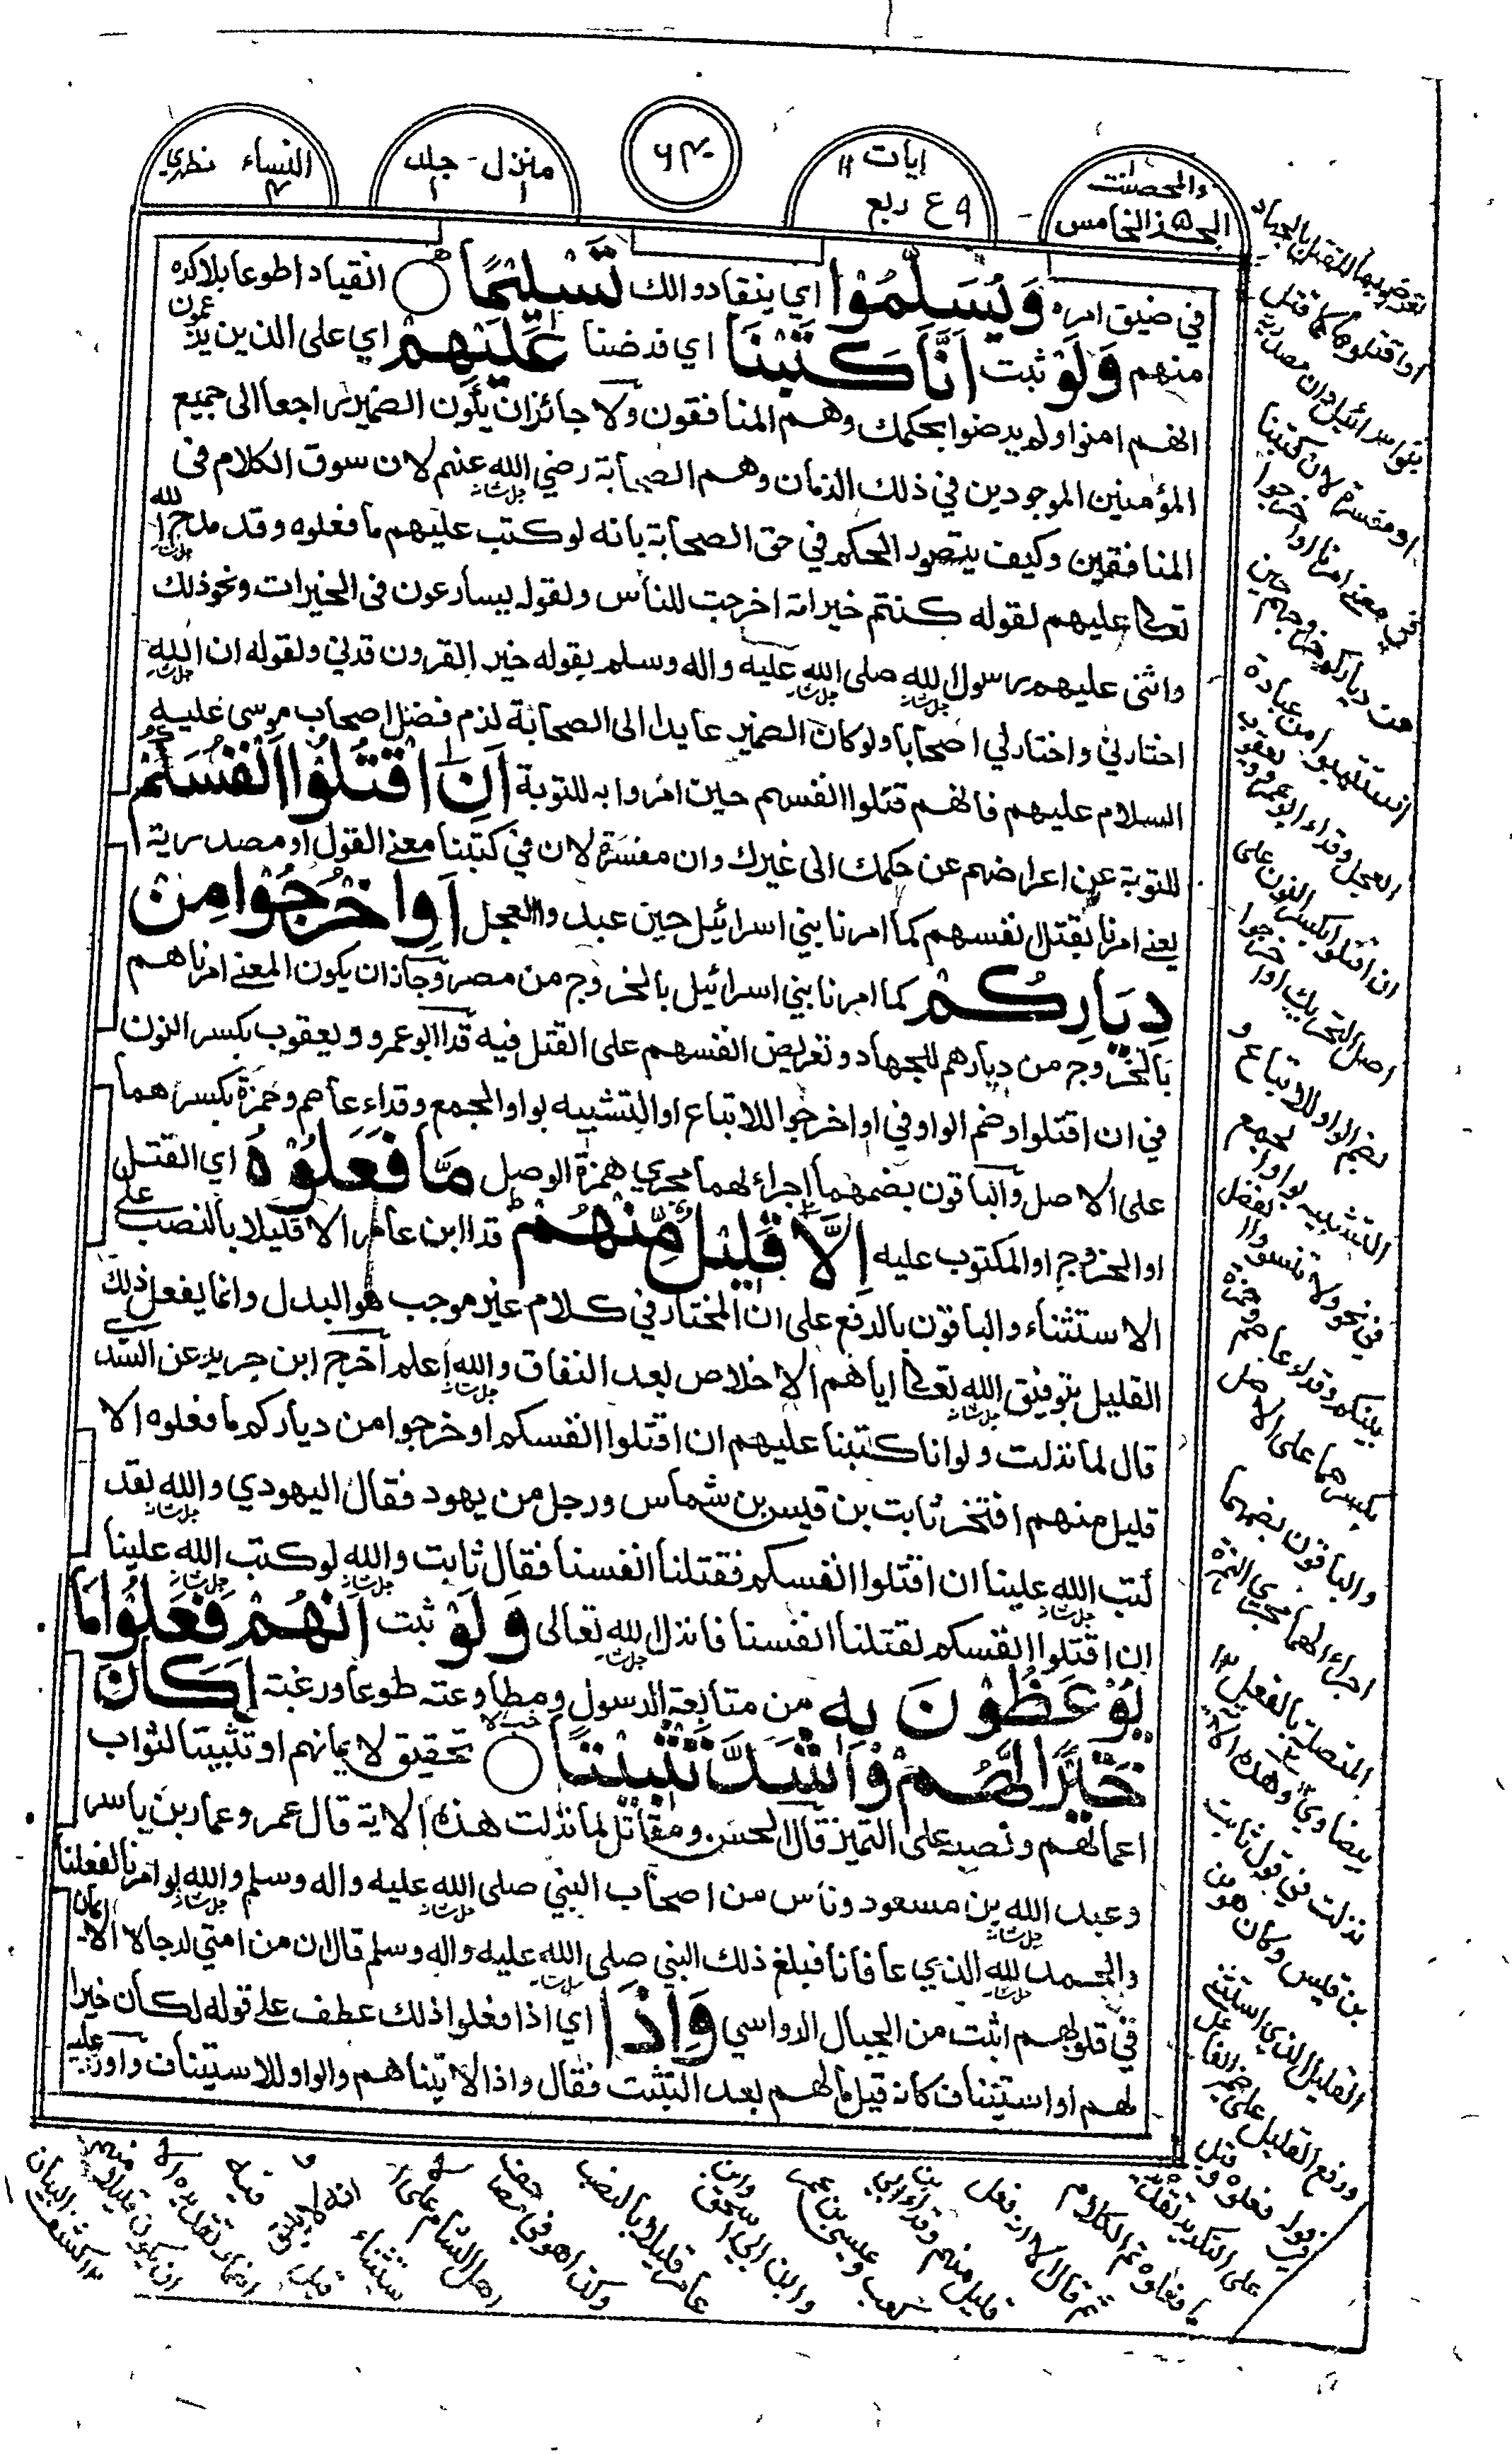 والمحصنت
الجزء الخامس
ايات ١١
٩ ع ربع
٦٤٠
منزل - جلد
١ ١
النساء نظري
٤
في ضيق امره وَيُسَلِّمُوْا اي ينقادوا لك تَسْلِيْمًا ○ انقيادا طوعا بلا كره
منهم وَلَوْ ثبت اَنَّا كَتَبْنَا اي فرضنا عَلَيْهِمْ اي على الذين يزعمون
انهم امنوا ولم يرضوا بحكمك وهم المنافقون ولا جائز ان يكون الضمير راجعا الى جميع
المؤمنين الموجودين في ذلك الزمان وهم الصحابة رضي الله عنهم لان سوق الكلام فى
المنافقين وكيف يتصور الحكم في حق الصحابة بانه لو كتب عليهم ما فعلوه وقد مدح الله
تعالى عليهم لقوله كنتم خير امة اخرجت للناس ولقوله يسارعون فى الخيرات ونحو ذلك
واثنى عليهم رسول الله صلى الله عليه واله وسلم بقوله خير القرون قرني ولقوله ان الله
اختارني واختار لي اصحابا ولو كان الضمير عايدا الى الصحابة لزم فضل اصحاب موسى عليه
السلام عليهم فانهم قتلوا انفسهم حين امروا به للتوبة اَنِ اقْتُلُوْا اَنْفُسَكُمْ
للتوبة عن اعراضهم عن حكمك الى غيرك وان مفسرة لان في كتبنا معنى القول او مصدرية
يعنى امرنا بقتل نفسهم كما امرنا بني اسرائيل حين عبدوا العجل اَوِ اخْرُجُوْا مِنْ
دِيَارِكُمْ كما امرنا بني اسرائيل بالخروج من مصر وجاز ان يكون المعنى امرناهم
بالخروج من ديارهم للجهاد وتعريض انفسهم على القتل فيه قرا ابو عمرو ويعقوب بكسر النون
في ان اقتلوا وضم الواو في او اخرجوا للاتباع او التشبيه بواو الجمع وقراء عاصم وحمزة بكسرهما
على الاصل والباقون بضمهما اجراء لهما مجرى همزة الوصل مَّا فَعَلُوْهُ اي القتل
او الخروج او المكتوب عليه اِلَّا قَلِيْلٌ مِّنْهُمْ قرا ابن عامر الا قليلا بالنصب على
الاستثناء والباقون بالرفع على ان المختار في كلام غير موجب هو البدل وانما يفعل ذلك
القليل بتوفيق الله تعالى اياهم الاخلاص بعد النفاق والله اعلم اخرج ابن جرير عن السدي
قال لما نزلت ولو انا كتبنا عليهم ان اقتلوا انفسكم او خرجوا من دياركم ما فعلوه الا
قليل منهم افتخر ثابت بن قيس بن شماس ورجل من يهود فقال اليهودي والله لقد
كتب الله علينا ان اقتلوا انفسكم فقتلنا انفسنا فقال ثابت والله لو كتب الله علينا
ان اقتلوا انفسكم لقتلنا انفسنا فانزل الله تعالى وَلَوْ ثبت اَنَّهُمْ فَعَلُوْا مَا
يُوْعَظُوْنَ بِهٖ من متابعة الرسول ومطاوعته طوعا ورغبة لَكَانَ
خَيْرًا لَّهُمْ وَاَشَدَّ تَثْبِيْتًا ○ تحقيق لايمانهم او تثبيتا لثواب
اعمالهم ونصبه على التميز قال الحسن ومقاتل لما نزلت هذه الاية قال عمر وعمار بن ياسر
وعبد الله بن مسعود وناس من اصحاب النبي صلى الله عليه واله وسلم والله لو امرنا لفعلنا
والحمد لله الذي عافانا فبلغ ذلك النبي صلى الله عليه واله وسلم قال ان من امتي لرجالا الايمان
في قلوبهم اثبت من الجبال الرواسي وَاِذًا اي اذا فعلوا ذلك عطف على قوله لكان خيرا
لهم او استيناف كانه قيل ما لهم بعد التثبت فقال واذا لاتيناهم والواو للاستيناف واورد عليه
تعرضوا بها للقتل بالجهاد
او اقتلوها كما قتل
بنوا سرائيل وان مصدرية
او مفسرة لان كتبنا
في معنى امرنا او اخرجوا
من دياركم خروجهم حين
استتيبوا من عبادة
العجل وقراء ابو عمرو ويعقوب
ان اقتلوا بكسر النون على
اصل التحريك او اخرجوا
بضم الواو للاتباع و
التشبيه بواو الجمع
في نحو ولا تنسوا الفضل
بينكم وقراء عاصم وحمزة
بكسرهما على الاصل
والباقون بضمهما
اجراء لهما مجرى الهمزة
المتصلة بالفعل ١٢
بيضاوي وهذه الاية
نزلت في قول ثابت
بن قيس وكان هو من
القليل الذي استثنى
ورفع القليل على ضمير الفاعل
في قوله فعلوه وقيل
على التكرير تقديره
ما فعلوه تم الكلام
ثم قال الا انه فعل
قليل منهم وقراء ابي
وعيسى بن عمر
وابن ابي اسحق وابن
عامر قليلا بالنصب
وكذا هو في مصاحف
اهل الشام على